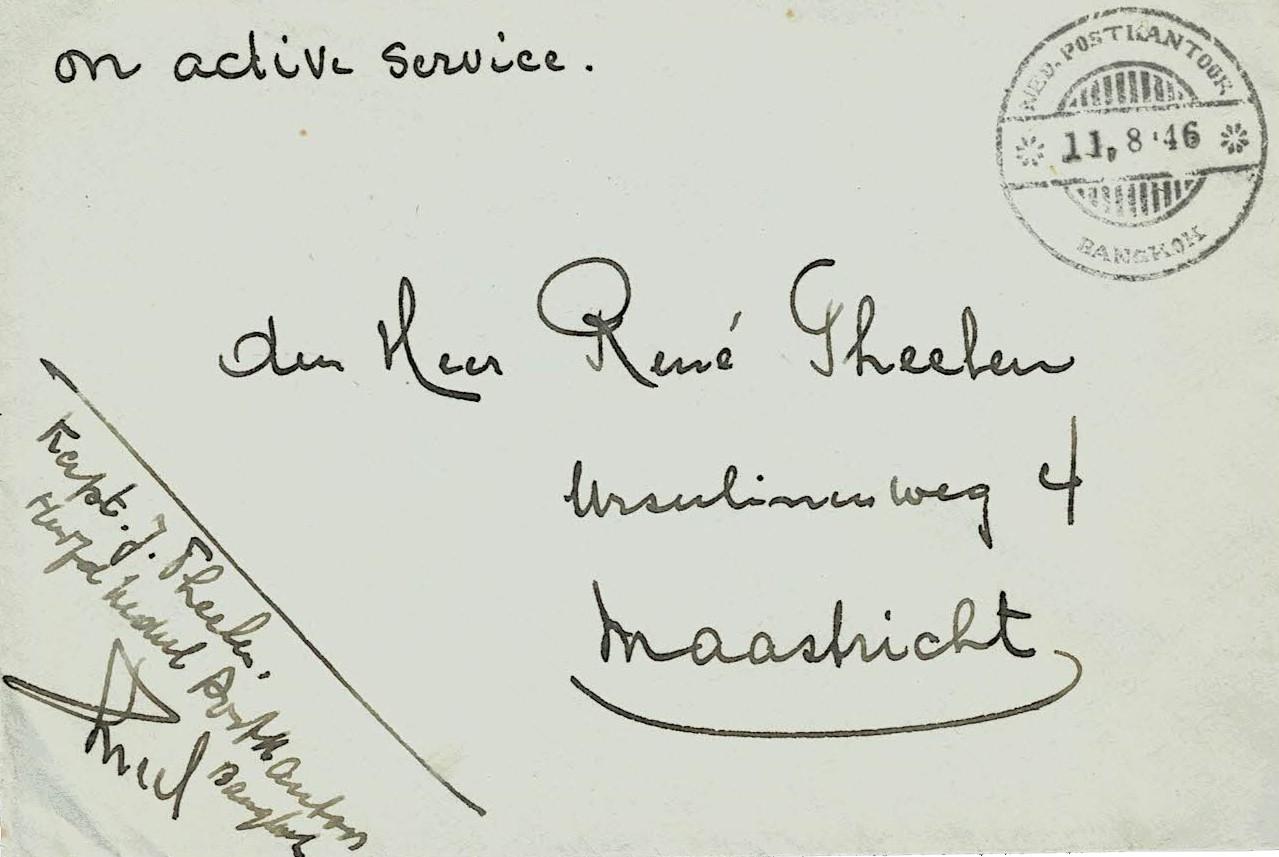 on active service.
NED. POSTKANTOOR
11.8.46
BANGKOK
den Heer René Theelen
Ursulinenweg 4
Maastricht
Kapt. J. Theelen.
Hoofd Nederl Postkantoor
Bangkok